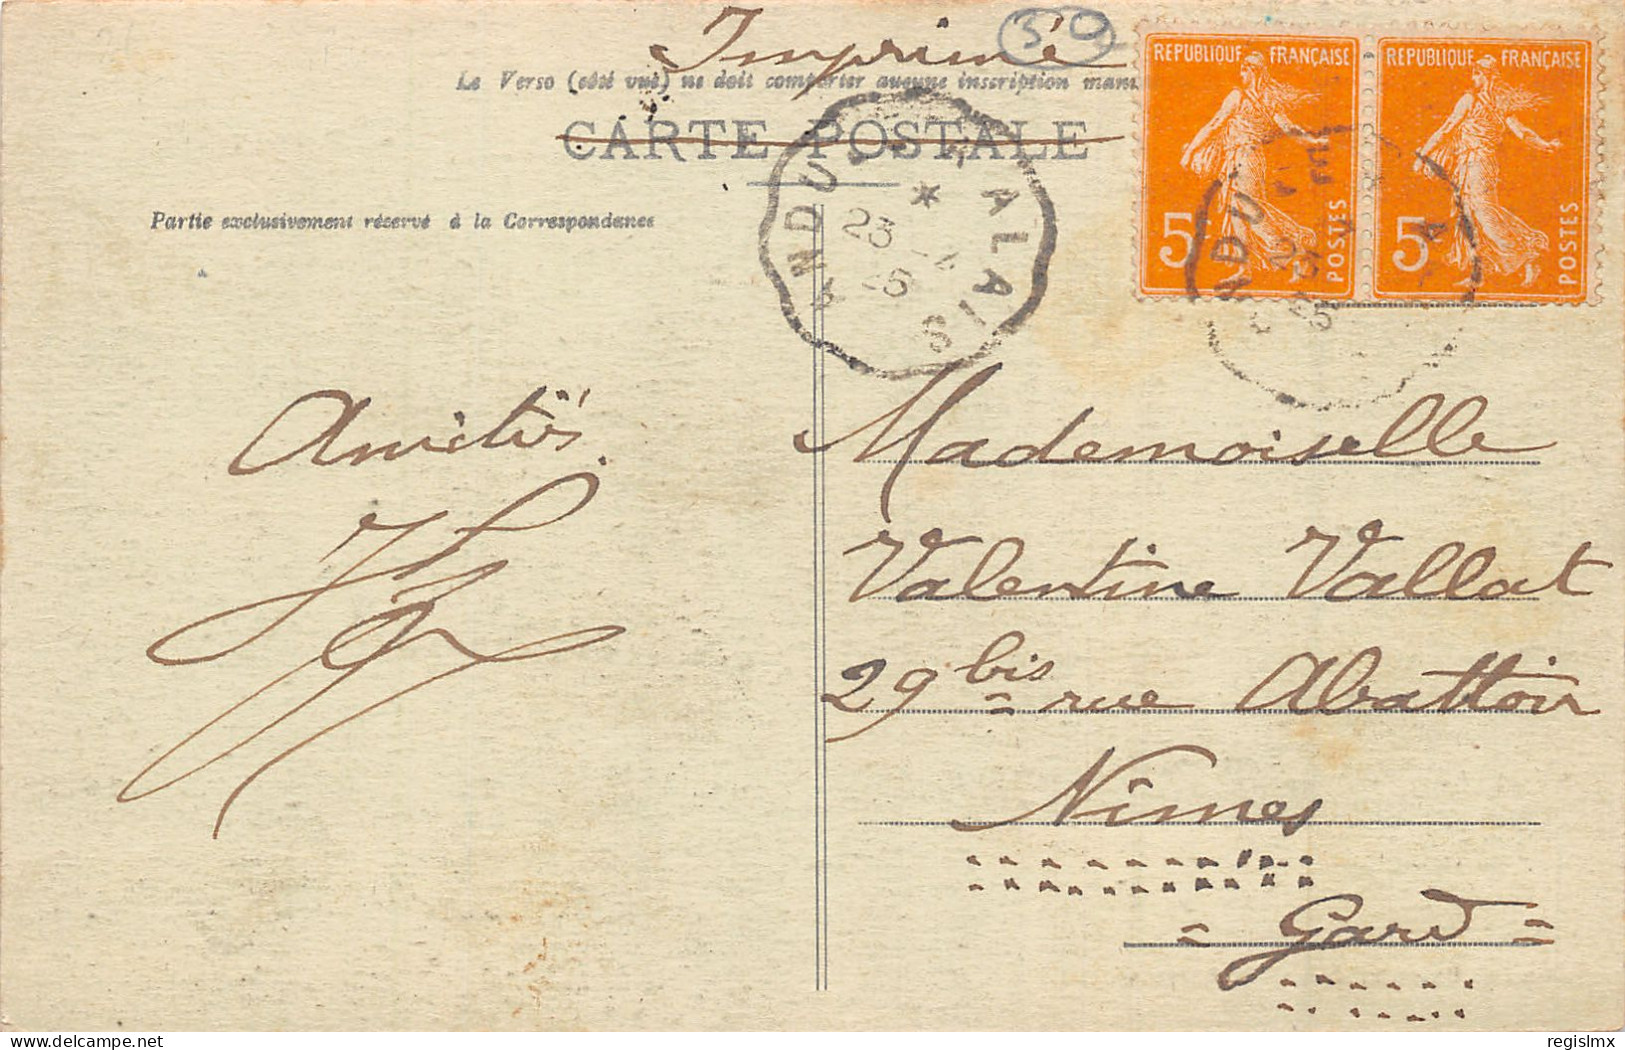 Imprimé
30
Le Verso (côté vue) ne doit comporter aucune inscription manu
CARTE POSTALE
Partie exclusivement réservé à la Correspondance
REPUBLIQUE FRANÇAISE
5
POSTES
REPUBLIQUE FRANÇAISE
5
POSTES
ALAIS
23
Amitiés.
Mademoiselle
Valentine Vallat
29 bis rue Abattoir
Nîmes
= Gard =
regislmx